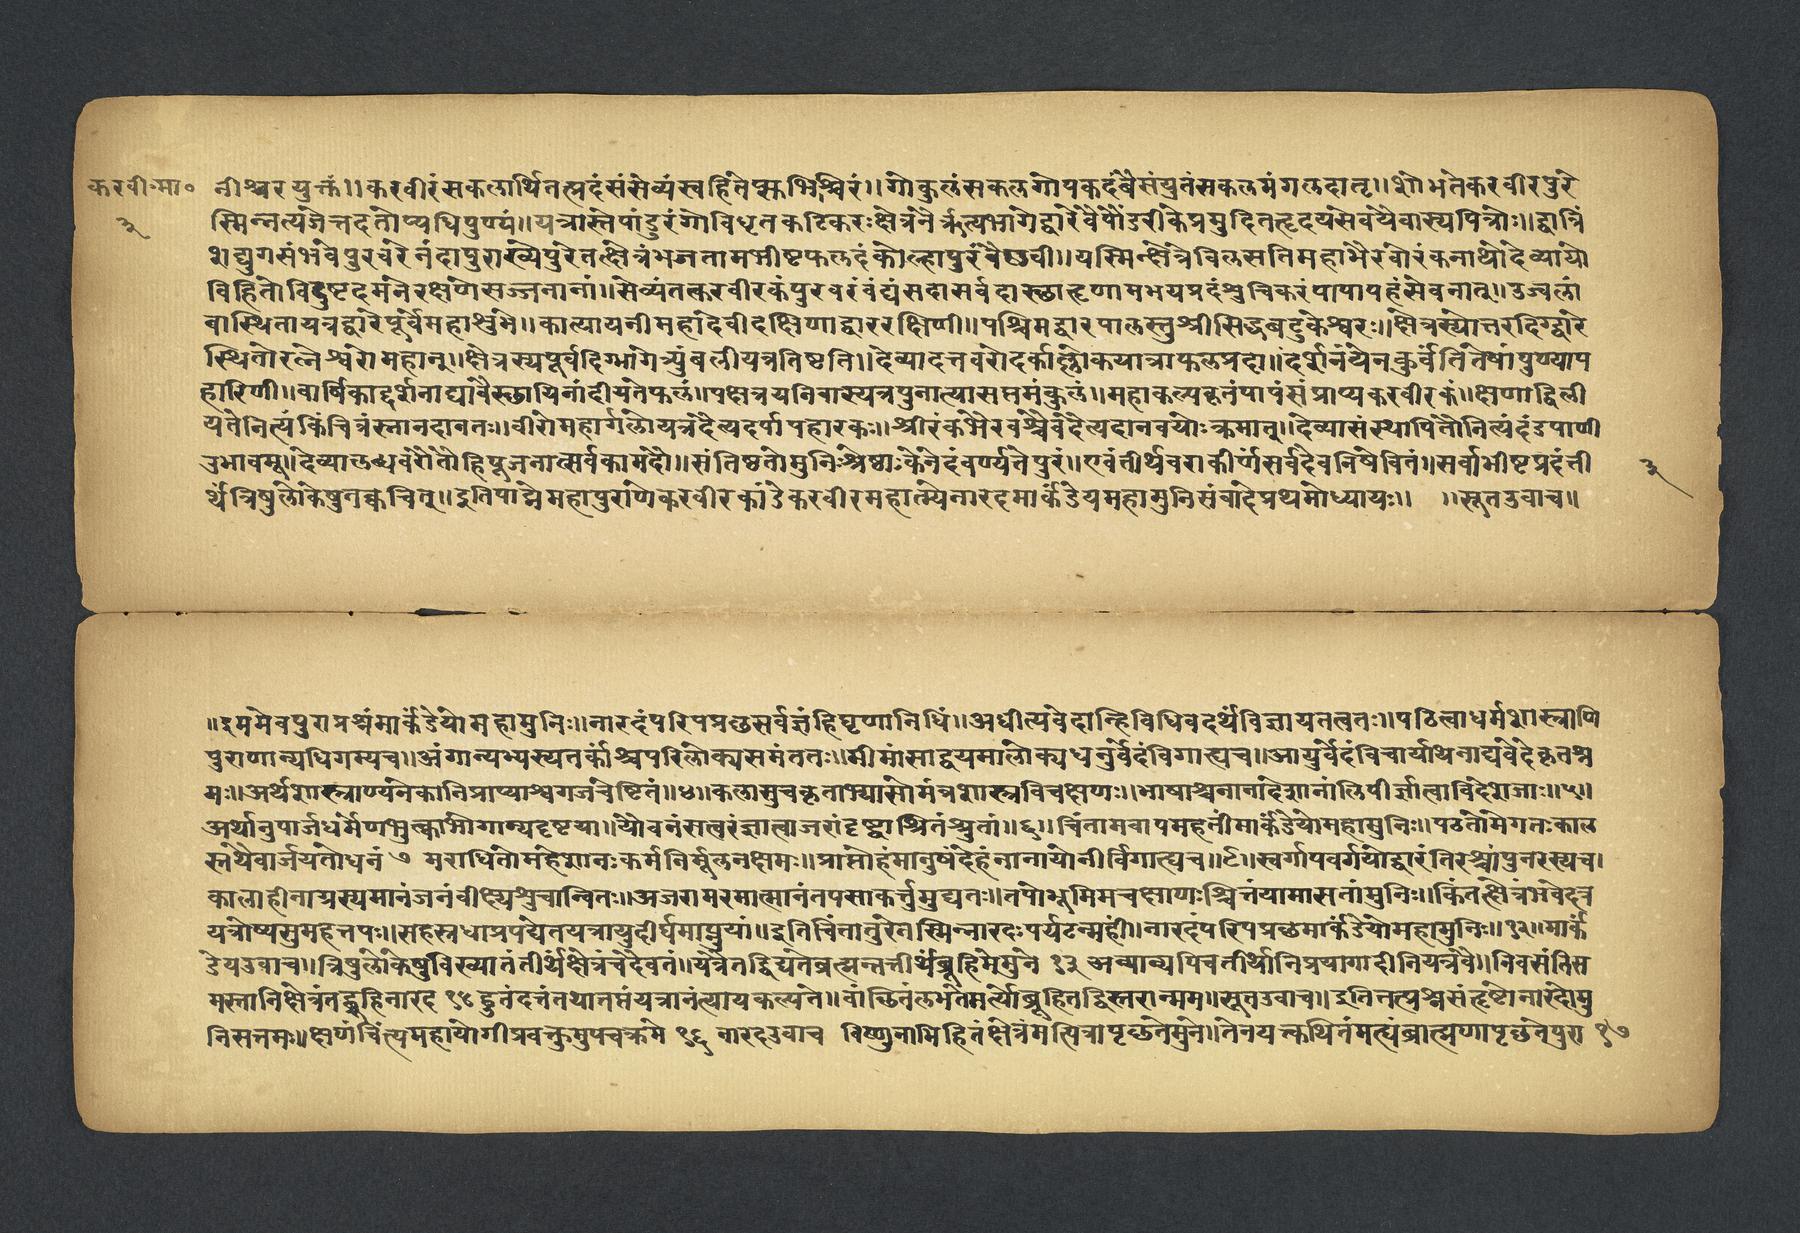 करवी॰मा॰
३
नीश्वरयुक्तं।।करवीरंसकलार्थितत्प्रदंसंसेव्यंस्वहितेप्सुभिश्चिरं।।गोकुलंसकलगोपकदंबैःसंयुतंसकलमंगलदातृ।।शोभतेकरवीरपुरे
स्मिन्नत्यजेत्तदतोप्यधिपुण्यं।।यत्रास्तेपांडुरंगोविधृतकटिकरःक्षेत्रनैर्ऋत्यभागेद्वारेवैपौंडरीकेप्रमुदितहृदयंसेवयैवास्यपित्रोः।।द्वात्रिं
शद्युगसंभवेपुरवरेनंदापुराख्येपुरेतत्क्षेत्रंभजतामभीष्टफलदंकोल्हापुरंवैष्णवी।।यस्मिन्क्षेत्रेविलसतिमहाभैरवोरंकनाथोदेव्यायो
विहितोविदुष्टदमनेरक्षणेसज्जनानां।।सेव्यंतत्करवीरकंपुरवरंवंद्यंसदासर्वदास्छातृणामभयप्रदंशुचिकरंपापापहंसेवनात्।।उज्वलां
बास्थितायत्रद्वारेपूर्वेमहाशुभे।।कात्यायनीमहादेवीदक्षिणाद्वाररक्षिणी।।पश्चिमद्वारपालस्तुश्रीसिद्धबटुकेश्वरः।।क्षेत्रस्योत्तरदिग्द्वारे
स्थितोरत्नेश्वरोमहान्।।क्षेत्रस्यपूर्वदिग्भागेत्र्युंबलीयत्रतिष्टति।।देव्यादत्तवरोदर्काल्लोकयात्राफलप्रदा।।दर्शनंयेनकुर्वंतितेषांपुण्याप
हारिणी।।वार्षिकाद्दर्शनाद्यावैस्छायिनांदीयतेफलं।।पक्षत्रयनिवास्यत्रपुनात्यासप्तमंकुलं।।महाकल्पकृतंपापंसंप्राप्यकरवीरकं।।क्षणाद्विली
यतेनित्यंकिंचित्रंस्नानदानतः।।वीरोमहार्गलोयत्रदैत्यदर्पापहारकः।।श्रीरंकभैरवश्चैवदैत्यदानवयोःक्रमात्।।देव्यासंस्थापितोनित्यंदंडपाणी
उभावमू।।देव्यालब्धवरोतोहिपूजनात्सर्वकामदौ।।संतिष्ठतोमुनिःश्रेष्ठाःकेनेदंवर्ण्यतेपुरं।।एवंतीर्थवराकीर्णसर्वदेवनिषेवितं।।सर्वाभीष्टप्रदंती
३
र्थंत्रिषुलोकेषुनक्वचित्।।इतिपाद्मेमहापुराणेकरवीरकांडेकरवीरमहात्म्येनारदमार्कंडेयमहामुनिसंवादेप्रथमोध्यायः।। ।।सूतउवाच॥
॥इममेवपुराप्रश्नंमार्कंडेयोमहामुनिः॥नारदंपरिपप्रछसर्वज्ञंहिघृणानिधिं॥अधीत्यवेदान्हिविधिवदर्थंविज्ञायतत्वतः॥पठित्वाधर्मशास्त्राणि
पुराणान्यधिगम्यच॥अंगान्यभ्यस्यतर्कांश्चपरिलोक्यसमंततः॥मीमांसाद्वयमालोक्यधनुर्वेदंविगाह्यच॥आयुर्वेदंविचार्याथनाद्यवेदेकृतश्र
मः॥अर्थशास्त्राण्यनेकानिप्राप्याश्वगजचेष्टितं॥४॥कलासुचकृताभ्यासोमंत्रशास्त्रविचक्षणः॥भाषाश्चनानादेशानांलिपीर्ज्ञात्वाविदेशजाः॥५॥
अर्थानुपार्जधर्मेणभुत्काभोगान्यदृष्टया॥यौवनंसत्वरंज्ञात्वाजरांदृष्ट्वाश्रितंश्रुतां॥६॥चिंतामवापमहतीमार्कंडेयोमहामुनिः॥पठतोमेगतःकाल
स्तथैवार्जयतोधनं ७ मराधितोमहेशानःकर्मनिर्मूलनक्षमः॥प्राप्तोहंमानुषंदेहंनानायोनीर्विगाह्यच॥८॥स्वर्गापवर्गयोद्वारंतिरश्चांपुनरस्यच।
कालाहीनाग्रस्यमानंजनंवीक्ष्यशुचान्वितः॥अजरामरमात्मानंतपसाकर्त्तुमुद्यतः॥तपोभूमिमचक्षाणःश्चिंतयामासतांमुनिः॥किंतत्क्षेत्रंभवेदत्र
यत्रोष्यसुमहत्तपः॥सहस्त्रधाप्रपद्येतयत्रायुर्दीर्घमाप्नुयां॥इतिचिंतातुरेतस्मिन्नारदःपर्यटन्महीं॥नारदंपरिपप्रछमार्कंडेयोमहामुनिः॥१२॥मार्कं
डेयउवाच॥त्रिषुलोकेषुविख्यातंतीर्थंक्षेत्रंचदेवतं॥यत्रैतद्विद्यतेब्रह्मन्तत्तीर्थंब्रूहिमेमुने १३ अन्यान्यपिचतीर्थानिप्रयागादीनियत्रवै॥निवसंतिस
मस्तानिक्षेत्रंतद्ब्रूहिनारद १४ हुतंदत्तंतथातप्तंयत्रानंत्यायकल्पते॥वांछितंलभतेमर्त्योब्रूहितद्विस्तरान्मम॥सूतउवाच॥इतितत्प्रश्नसंहृष्टोनारदोमु
निसत्तमः॥क्षणंचिंत्यमहायोगीप्रवक्तुमुपचक्रमे १६ नारदउवाच विष्णुनाभिहितंक्षेत्रंमत्पित्रापृछतेमुने॥तेनयत्कथितंमह्यंब्राह्मणापृछतेपुरा १७